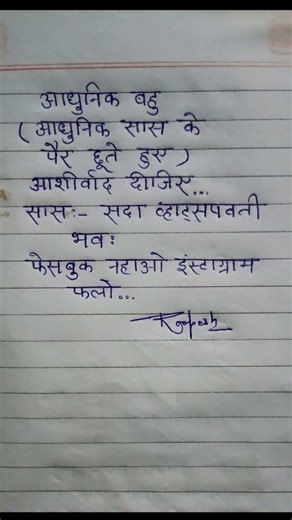 आधुनिक बहु
( आधुनिक सास के
पैर छूते हुए )
आशीर्वाद दीजिए...
सासः- सदा व्हाट्सपवती
भवः
फेसबुक नहाओ इंस्टाग्राम
फलो...